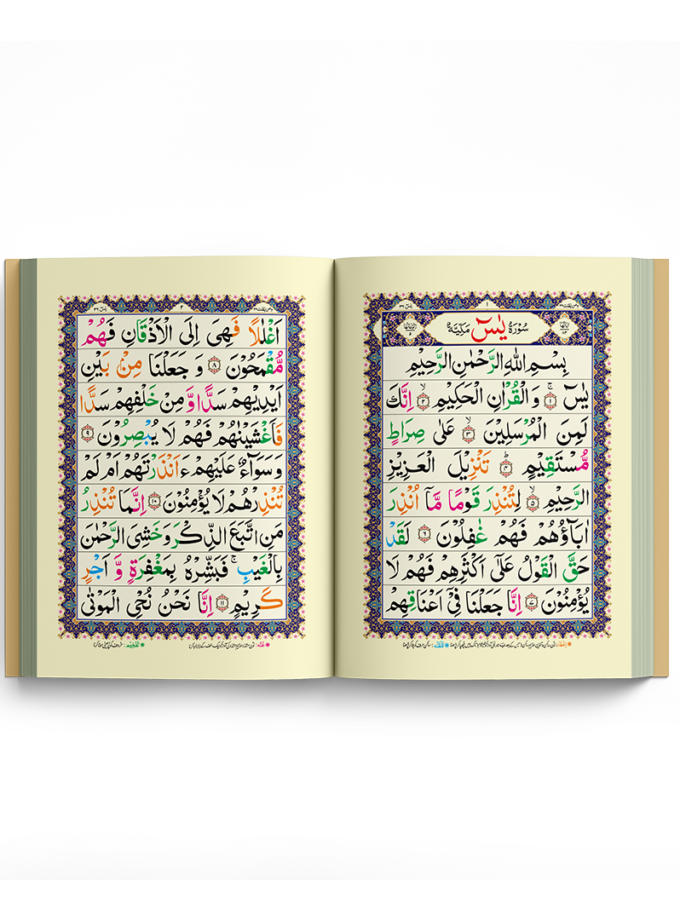 سُوْرَةُ يٰسٓ مَكِّيَّةٌ
بِسْمِ اللهِ الرَّحْمٰنِ الرَّحِيْمِ
يٰسٓ ۝١ وَالْقُرْاٰنِ الْحَكِيْمِ ۝٢ اِنَّكَ
لَمِنَ الْمُرْسَلِيْنَ ۝٣ عَلٰى صِرَاطٍ
مُّسْتَقِيْمٍ ۝٤ تَنْزِيْلَ الْعَزِيْزِ
الرَّحِيْمِ ۝٥ لِتُنْذِرَ قَوْمًا مَّاۤ اُنْذِرَ
اٰبَآؤُهُمْ فَهُمْ غٰفِلُوْنَ ۝٦ لَقَدْ
حَقَّ الْقَوْلُ عَلٰۤى اَكْثَرِهِمْ فَهُمْ لَا
يُؤْمِنُوْنَ ۝٧ اِنَّا جَعَلْنَا فِيْۤ اَعْنَاقِهِمْ
اَغْلٰلًا فَهِيَ اِلَى الْاَذْقَانِ فَهُمْ
مُّقْمَحُوْنَ ۝٨ وَ جَعَلْنَا مِنْۢ بَيْنِ
اَيْدِيْهِمْ سَدًّا وَّ مِنْ خَلْفِهِمْ سَدًّا
فَاَغْشَيْنٰهُمْ فَهُمْ لَا يُبْصِرُوْنَ ۝٩
وَسَوَآءٌ عَلَيْهِمْ ءَاَنْذَرْتَهُمْ اَمْ لَمْ
تُنْذِرْهُمْ لَا يُؤْمِنُوْنَ ۝١٠ اِنَّمَا تُنْذِرُ
مَنِ اتَّبَعَ الذِّكْرَ وَخَشِيَ الرَّحْمٰنَ
بِالْغَيْبِ ۚ فَبَشِّرْهُ بِمَغْفِرَةٍ وَّ اَجْرٍ
كَرِيْمٍ ۝١١ اِنَّا نَحْنُ نُحْيِ الْمَوْتٰى